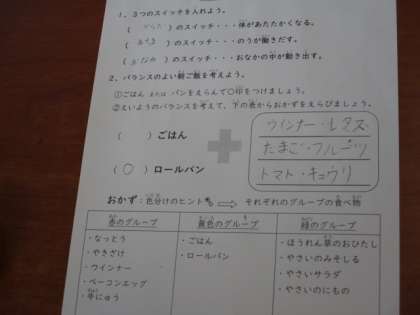 1．３つのスイッチを入れよう。
（ からだ ）のスイッチ・・・体があたたかくなる。
（ あたま ）のスイッチ・・・のうが働きだす。
（ おなか ）のスイッチ・・・おなかの中が動き出す。
2．バランスのよい朝ご飯を考えよう。
①ごはん または パンをえらんで〇印をつけましょう。
②えいようのバランスを考えて、下の表からおかずをえらびましょう。
（　　）ごはん
（ 〇 ）ロールパン
ウインナー・レタス
たまご・フルーツ
トマト・キョウリ
おかず：色分けのヒント ⇨ それぞれのグループの食べ物
赤のグループ
・なっとう
・やきざけ
・ウインナー
・ベーコンエッグ
・牛にゅう
黄色のグループ
・ごはん
・ロールパン
緑のグループ
・ほうれん草のおひたし
・やさいのみそしる
・やさいサラダ
・やさいのにもの